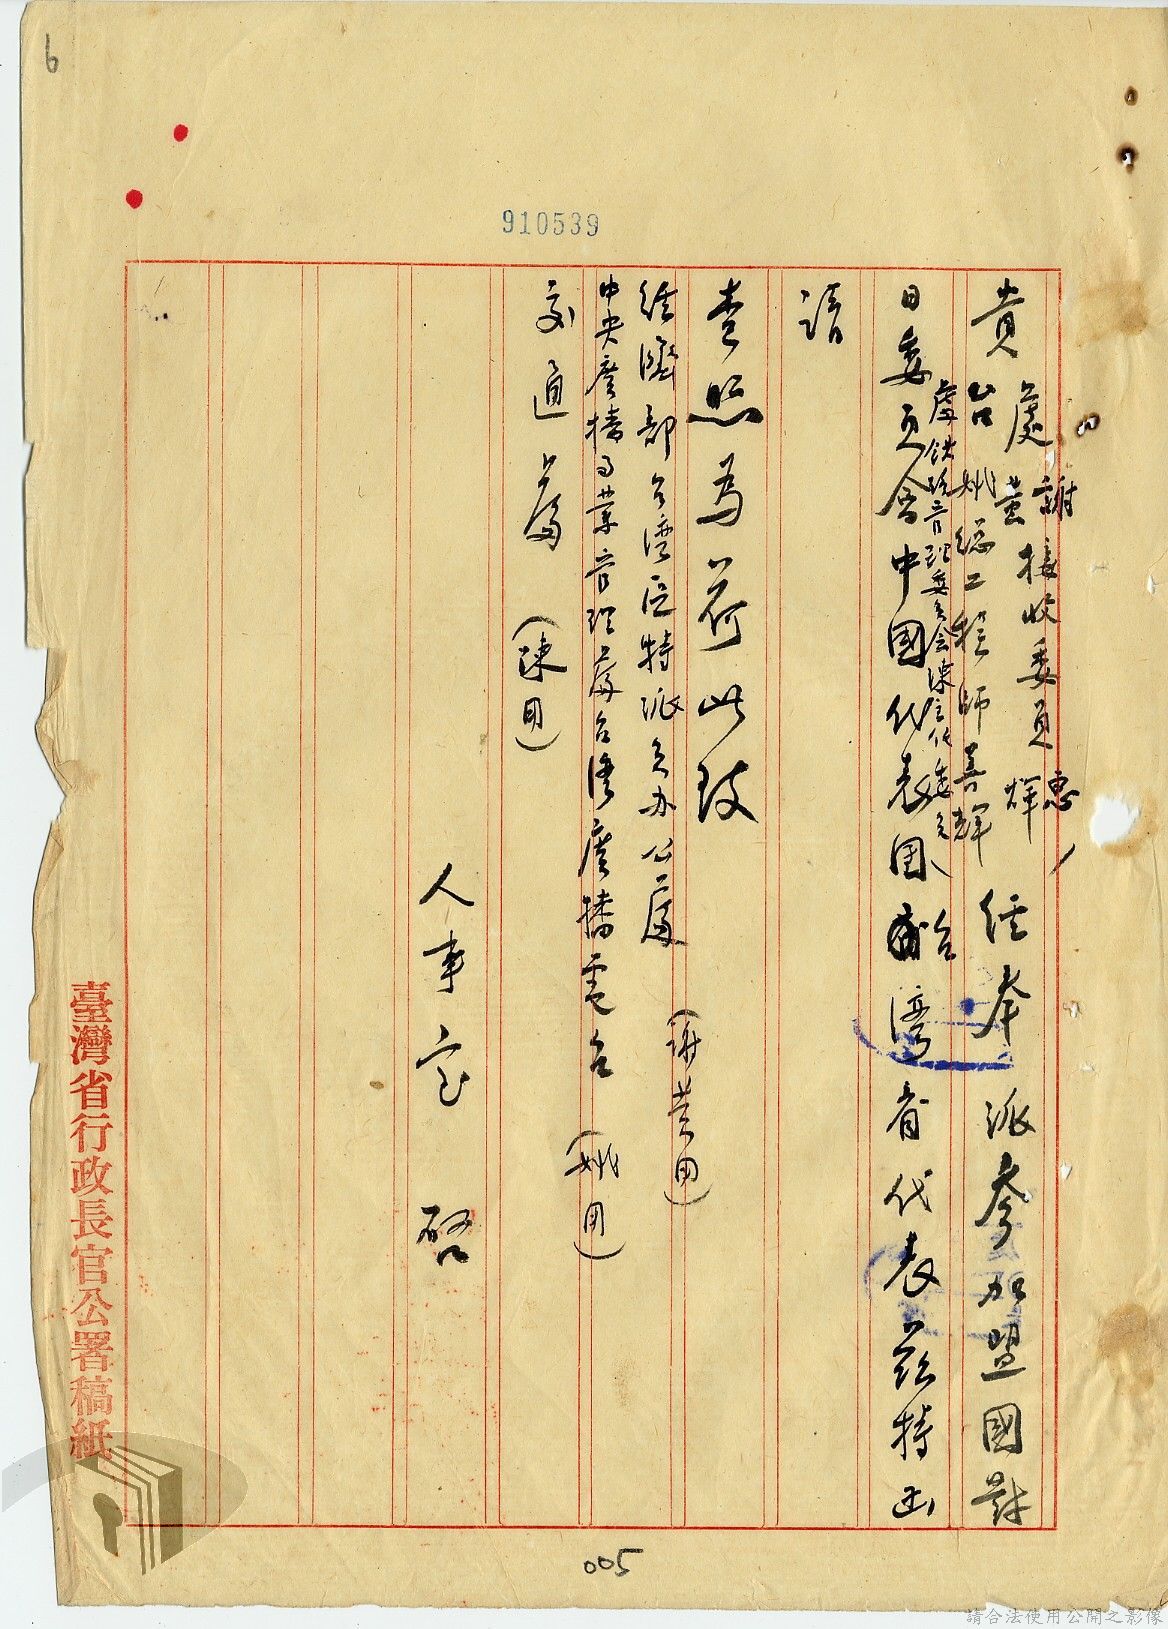 6
910539
貴
處
謝
黃
接收委員
惠
輝
台姚總工程師善輝
處鉄路管理委員会陳主任委員
經奉
派參加盟國對
日委員會中國代表団台湾省代表茲特函
請
查照為荷此致
經濟部台湾区特派員办公處
(謝黃用)
中央廣播事業管理處台湾廣播電台
(姚用)
交通處
(陳用)
人事室 啓
臺灣省行政長官公署稿紙
005
請合法使用公開之影像